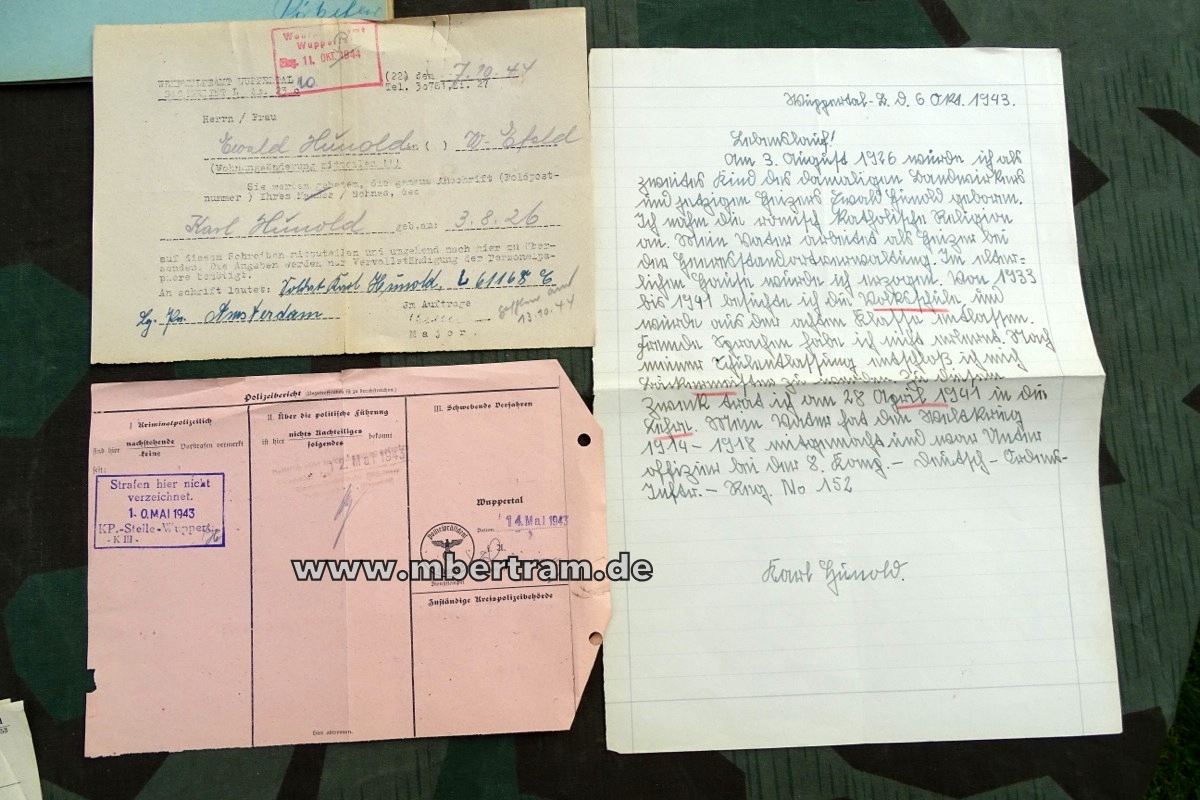 Wuppe
Eing. 11. OKT. 1944
WEHRMELDEAMT WUPPERTAL
(22) den 7.10.44
Tel. 30761, Kl. 27
Herrn / Frau
Ewald Hünold in ( ) W. Efeld
(Wohnungsänderung mitteilen !!!
Sie werden gebeten, die genaue Anschrift (Feldpost-
nummer ) Ihres / Sohnes, des
Karl Hünold geb.am: 3.8.26
auf diesem Schreiben mitzuteilen und umgehend nach hier zu über-
senden. Die Angaben werden zur Vervollständigung der Personalpa-
piere benötigt.
An schrift lautet: Soldat Karl Hünold, L 61168 E
Lg. Pa. Amsterdam
Im Auftrage
13.10.44
Major.
Polizeibericht
I Kriminalpolizeilich
nachstehende
keine
sind hier Vorstrafen vermerkt
Strafen hier nicht
verzeichnet.
10. MAI 1943
KP.-Stelle-Wuppert.
- K III -
II. Über die politische Führung
ist hier nichts Nachteiliges bekannt
folgendes
12. Mai 1943
III. Schwebende Verfahren
Wuppertal
Datum 14. Mai 1943
Dienststempel
Zuständige Kreispolizeibehörde
www.mbertram.de
Wuppertal-E. d. 6 Okt. 1943.
Lebenslauf!
Am 3. August 1926 wurde ich als
zweites Kind des damaligen Bandwirkers
und jetzigen Heizers Ewald Hünold geboren.
Ich nahm die römisch Katholische Religion
an. Mein Vater arbeitet als Heizer bei
der Heeresstandortverwaltung. Im elter-
lichen Hause wurde ich erzogen. Von 1933
bis 1941 besuchte ich die Volksschule und
wurde aus der achten Klasse entlassen.
Fremde Sprachen habe ich nicht erlernt. Nach
meiner Schulentlassung entschloß ich mich
zu werden. Zu diesem
Zweck trat ich am 28 April 1941 in die
Lehre. Mein Vater hat den Weltkrieg
1914 - 1918 mitgemacht und war Unter
offizier bei der 8. Komp. - Deutsch - Ordens-
Inftr. - Reg. No 152
Karl Hünold.